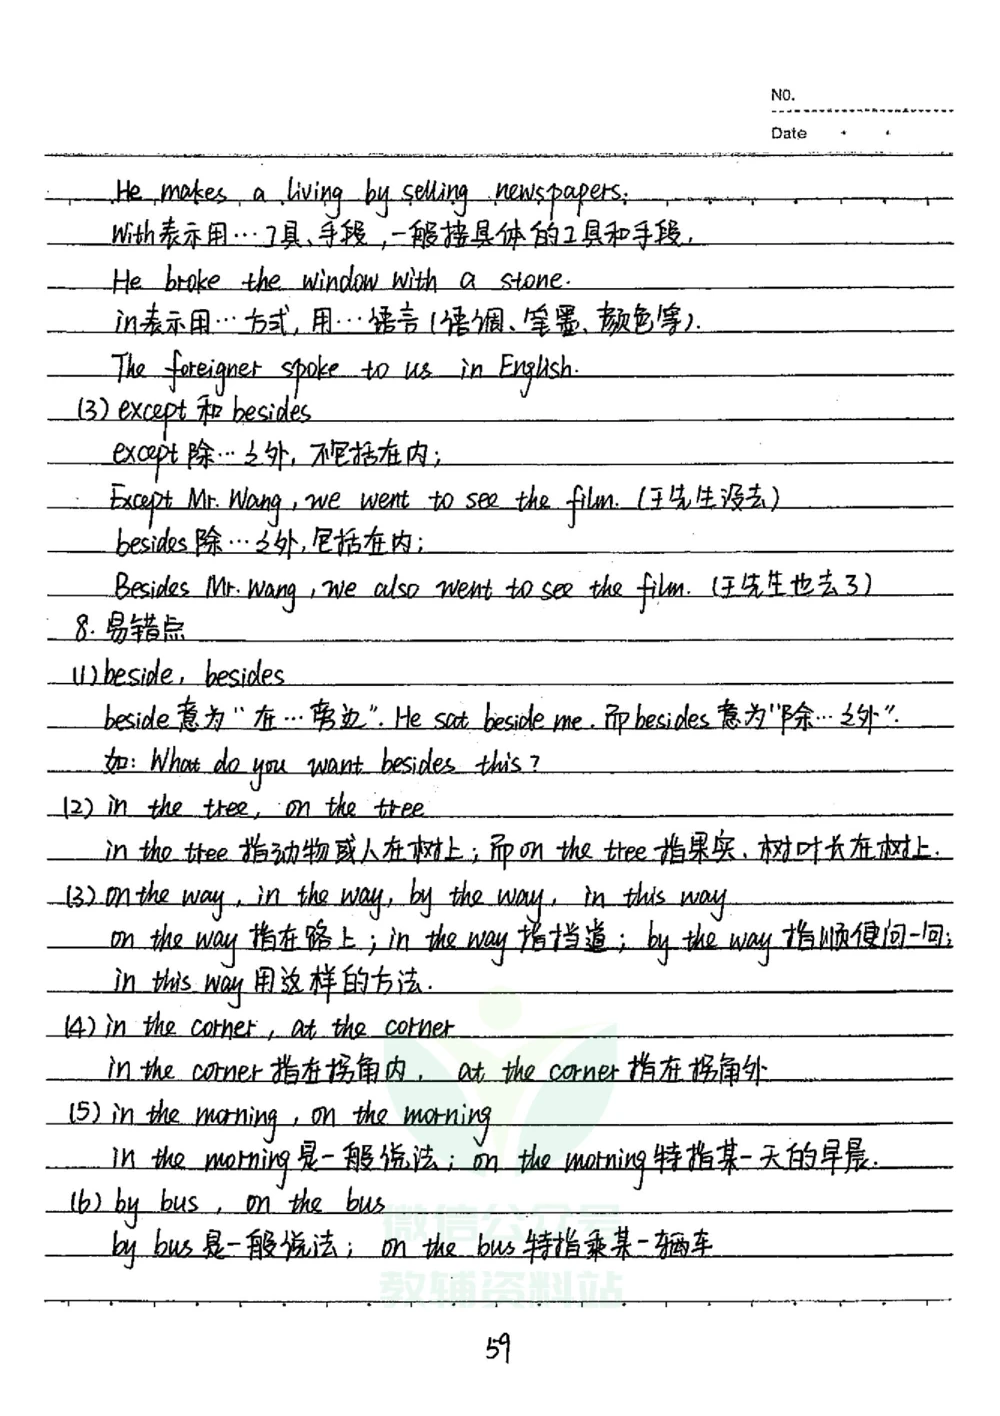 NO.
Date
He makes a living by selling newspapers.
With表示用…工具、手段,一般接具体的工具和手段.
He broke the window with a stone.
in表示用…方式,用…语言(语调、笔墨、颜色等).
The foreigner spoke to us in English.
(3) except 和 besides
except 除…之外,不包括在内;
Except Mr. Wang, we went to see the film. (王先生没去)
besides 除…之外,包括在内;
Besides Mr. Wang, we also went to see the film. (王先生也去了)
8. 易错点
(1) beside, besides
beside 意为"在…旁边". He sat beside me. 而besides 意为"除…之外".
如: What do you want besides this?
(2) in the tree, on the tree
in the tree 指动物或人在树上;而on the tree 指果实、树叶长在树上.
(3) on the way, in the way, by the way, in this way
on the way 指在路上;in the way 指挡道;by the way 指顺便问一问;
in this way 用这样的方法.
(4) in the corner, at the corner
in the corner 指在拐角内, at the corner 指在拐角外
(5) in the morning, on the morning
in the morning 是一般说法;on the morning 特指某一天的早晨.
(6) by bus, on the bus
by bus 是一般说法;on the bus 特指乘某一辆车
微信公众号
教辅资料站
59